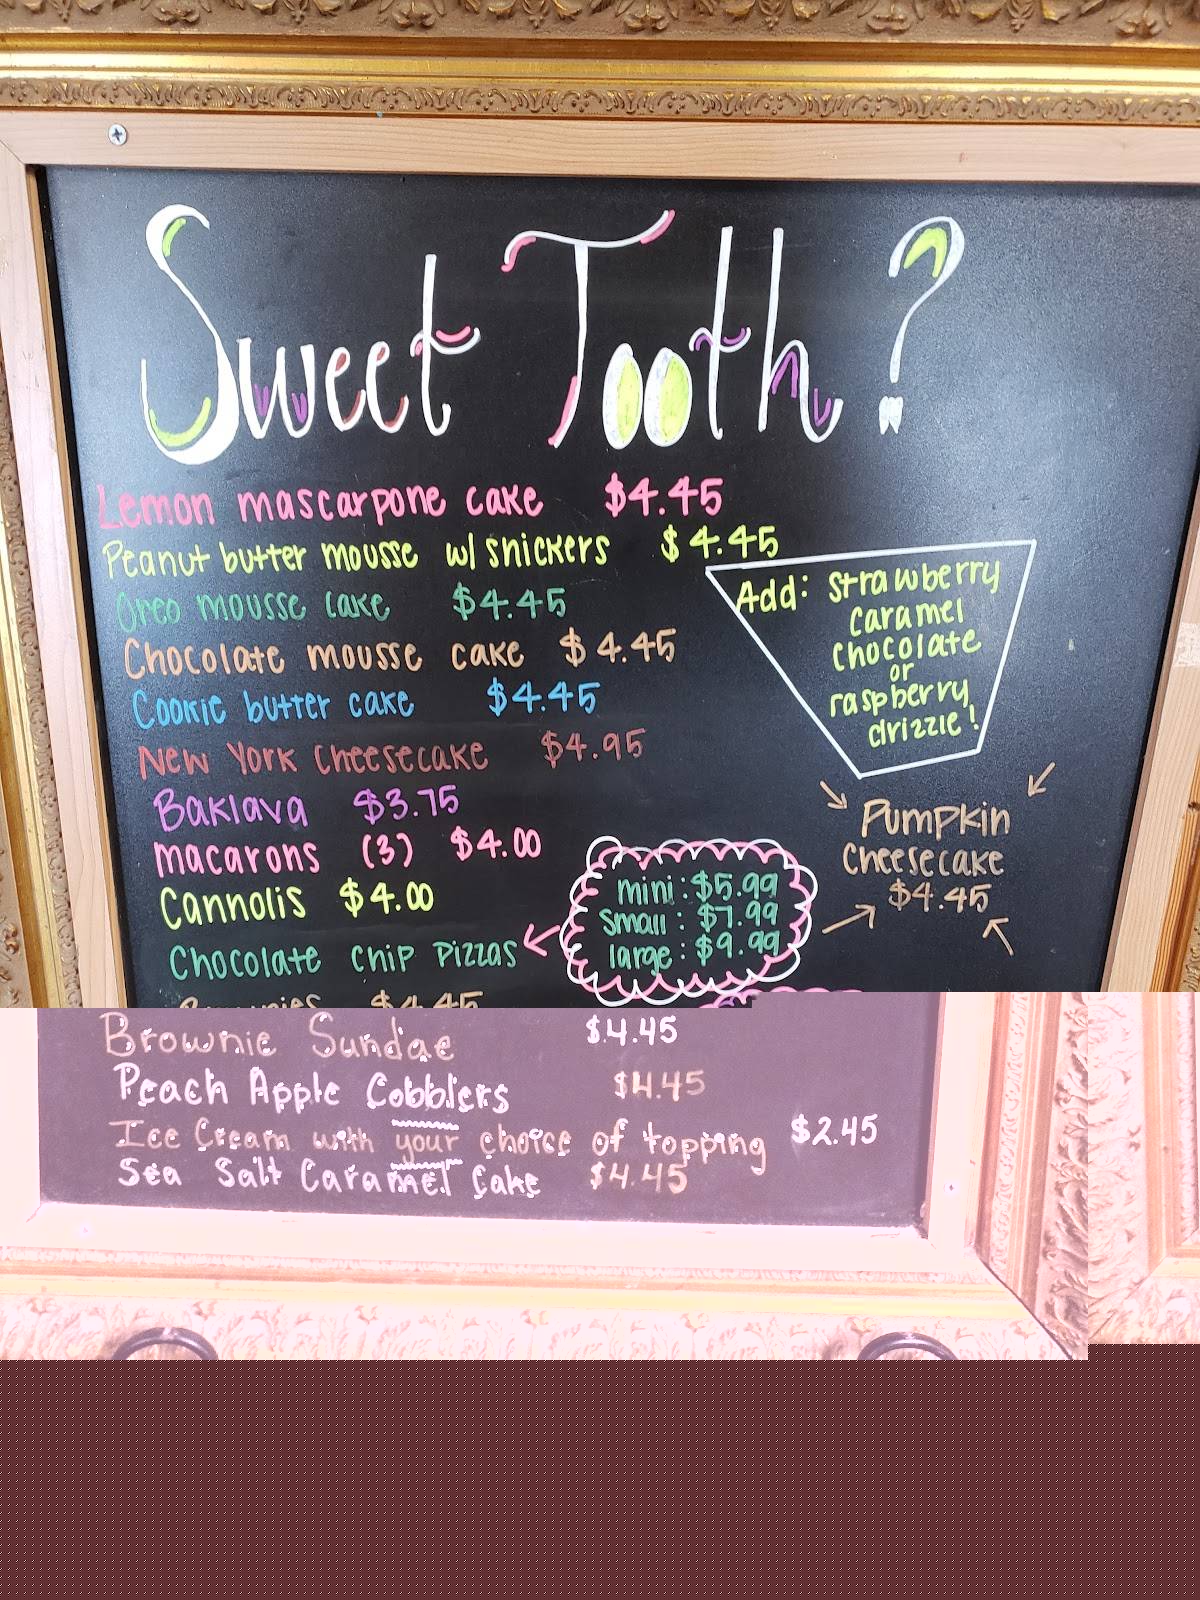 Sweet Tooth?
Lemon mascarpone cake $4.45
Peanut butter mousse w/ snickers $4.45
Oreo mousse cake $4.45
Chocolate mousse cake $4.45
Cookie butter cake $4.45
New York Cheesecake $4.95
Baklava $3.75
macarons (3) $4.00
Cannolis $4.00
Chocolate Chip Pizzas
mini: $5.99
small: $7.99
large: $9.99
Brownies $4.45
Add: Strawberry
Caramel
Chocolate
or
raspberry
drizzle!
Pumpkin
Cheesecake
$4.45
Brownie Sundae $4.45
Peach Apple Cobblers $4.45
Ice Cream with your choice of topping $2.45
Sea Salt Caramel Cake $4.45